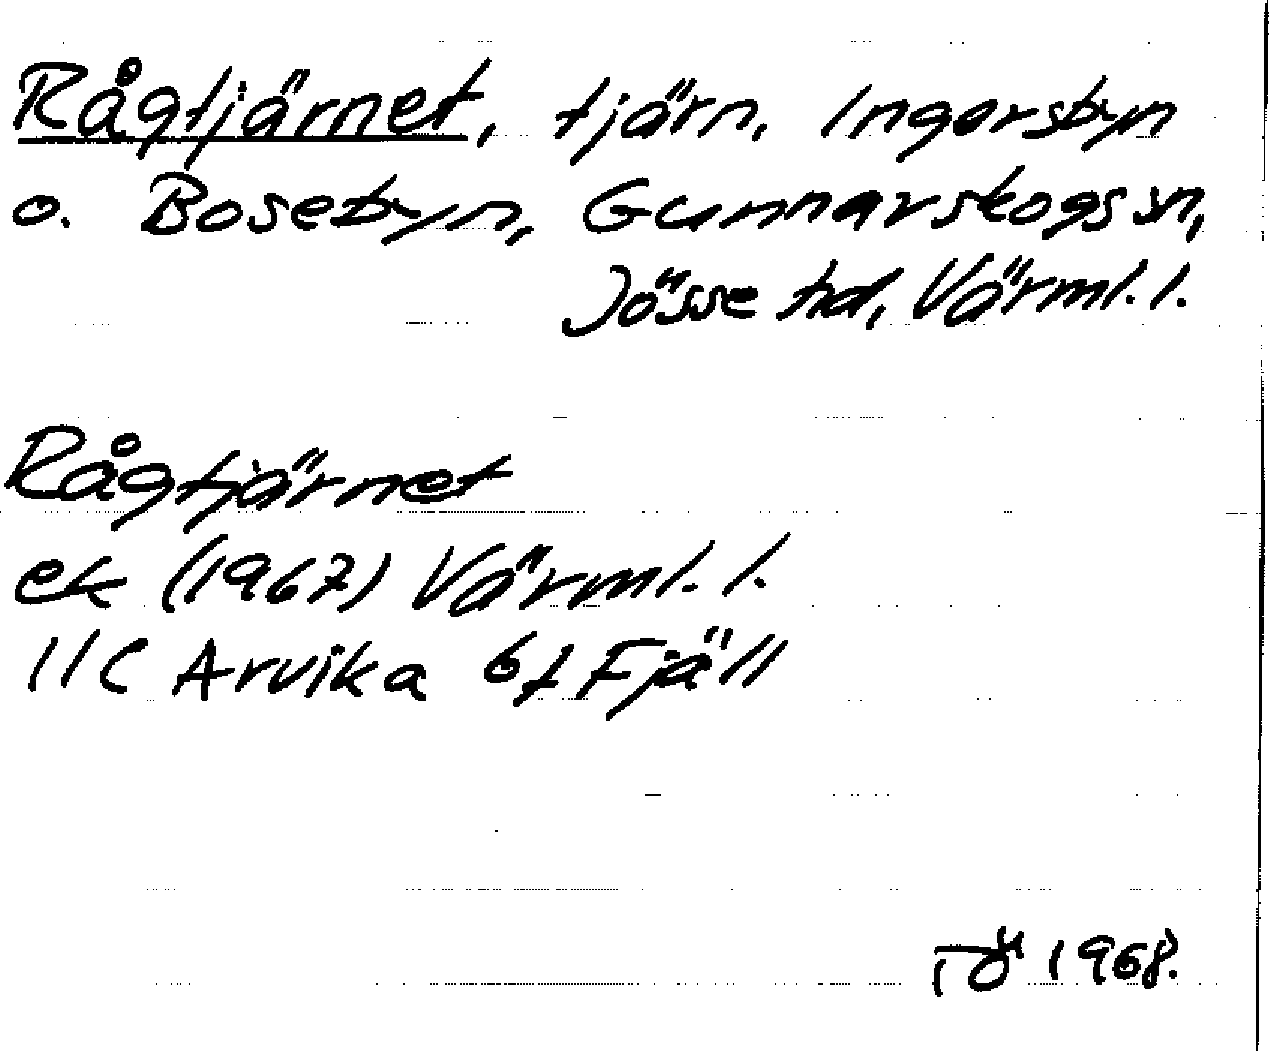 Rågtjärnet, tjärn, Ingersbyn
o. Bosebyn, Gunnarskogs sn,
Jösse hd, Värml. l.
Rågtjärnet
ek (1967) Värml. l.
11C Arvika 6f Fjäll
TÖ 1968.